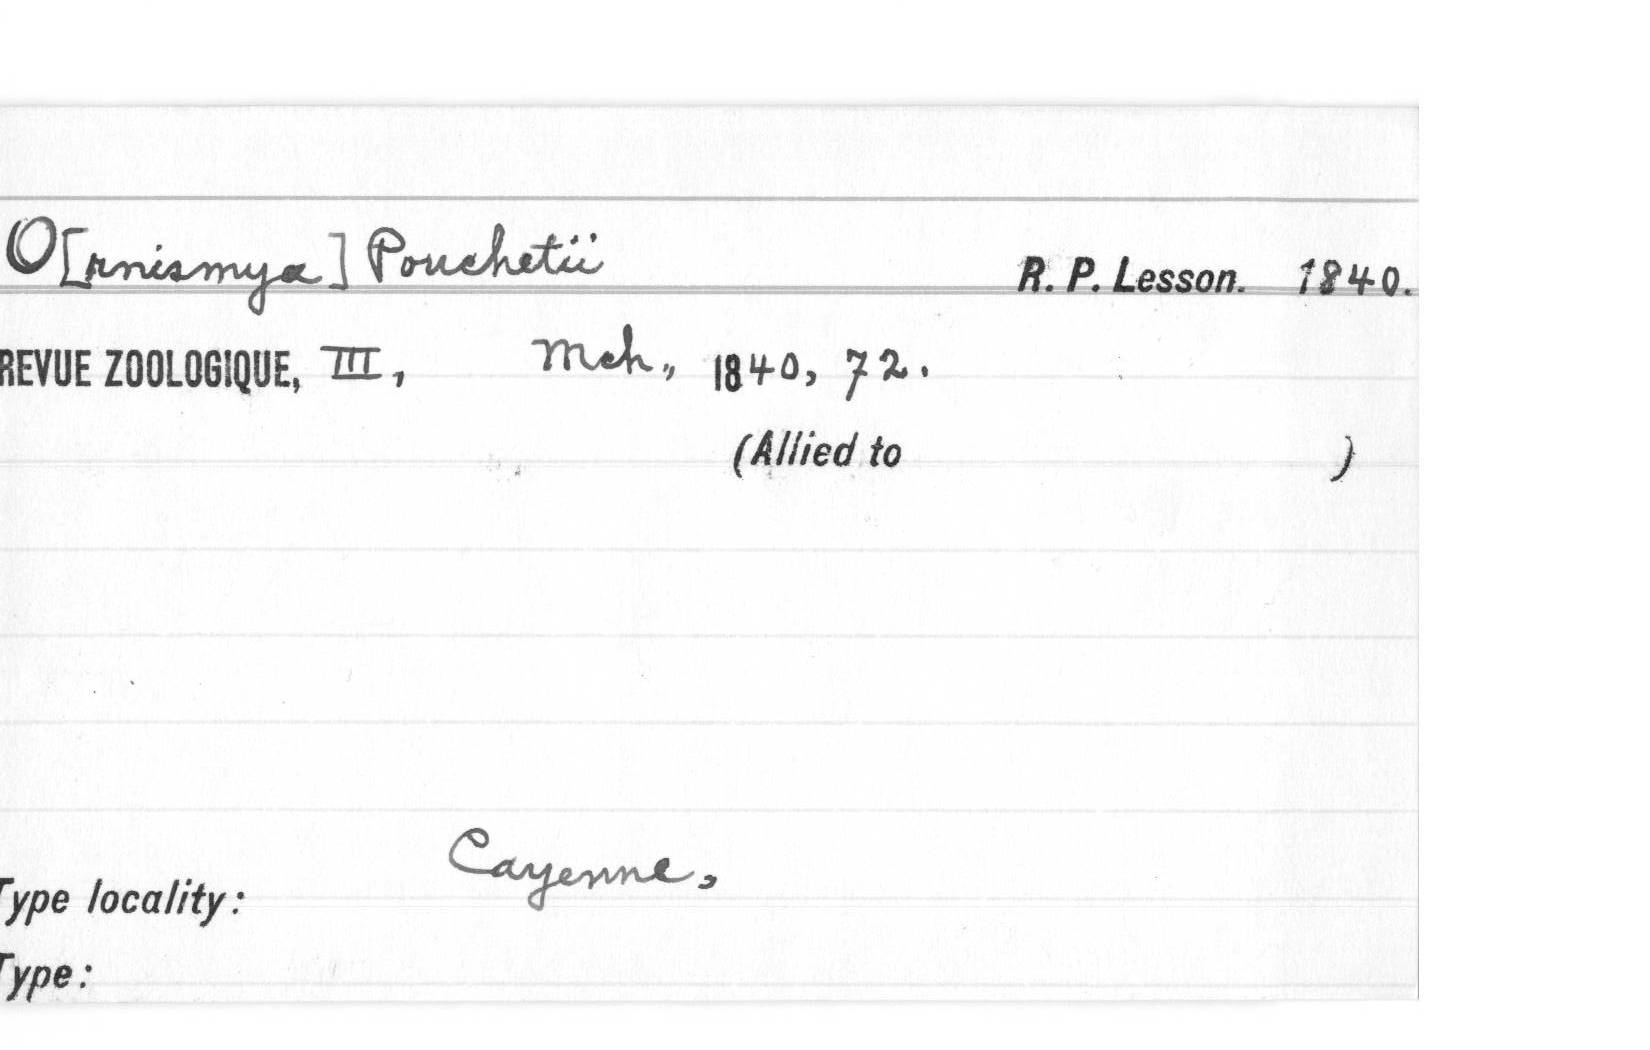 O[rnismya] Pouchetii R. P. Lesson. 1840.
REVUE ZOOLOGIQUE, III, Mch., 1840, 72.
(Allied to )
Cayenne,
Type locality:
Type: